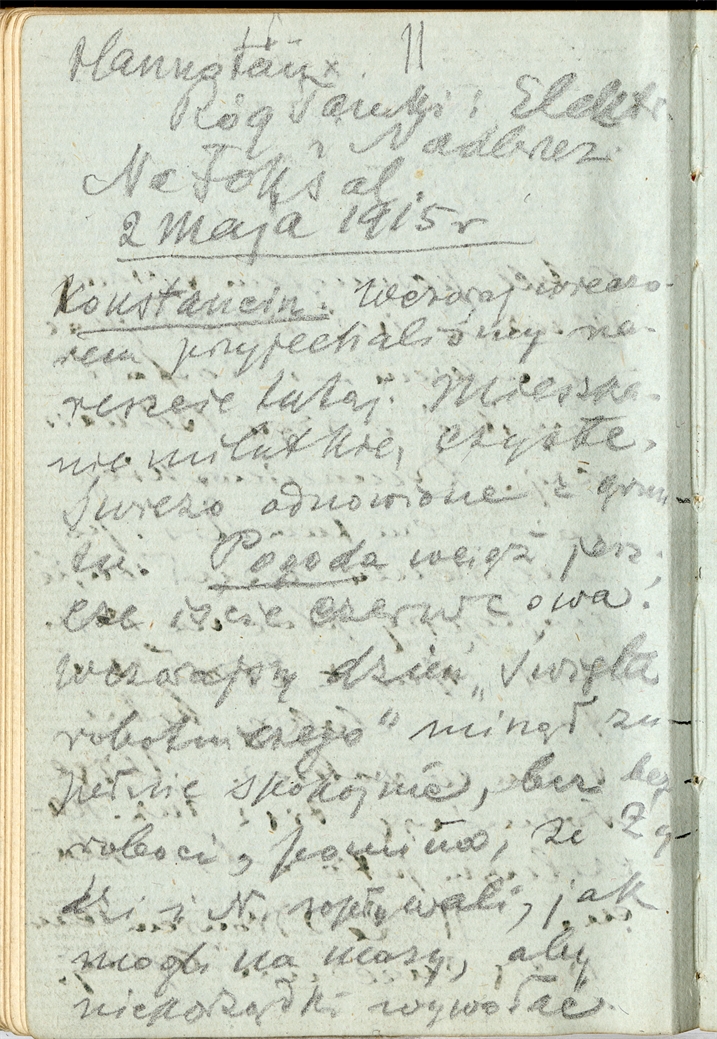 11
Róg Tamki i Elektr.
i Nadbrzeż.
Na Foksal.
2 maja 1915 r
Konstancin. Wczoraj wieczo-
rem przyjechaliśmy na-
reszcie tutaj. Mieszka-
nie milutkie, czyste,
świeżo odnowione z grun
tu. Pogoda wciąż jesz-
cze iście czerwcowa.
Wczorajszy dzień „Święta
robotniczego" minął zu-
pełnie spokojnie, bez bez
roboci, pomimo, że Ży-
dzi i N. wpływali, jak
mogli na masy, aby
nieporządki wywołać.